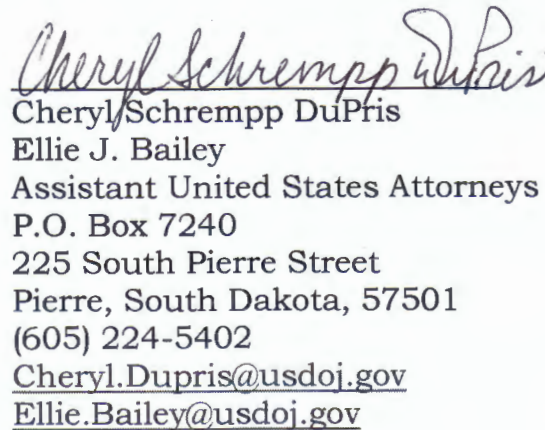 Cheryl Schrempp DuPris
Cheryl Schrempp DuPris
Ellie J. Bailey
Assistant United States Attorneys
P.O. Box 7240
225 South Pierre Street
Pierre, South Dakota, 57501
(605) 224-5402
Cheryl.Dupris@usdoj.gov
Ellie.Bailey@usdoj.gov